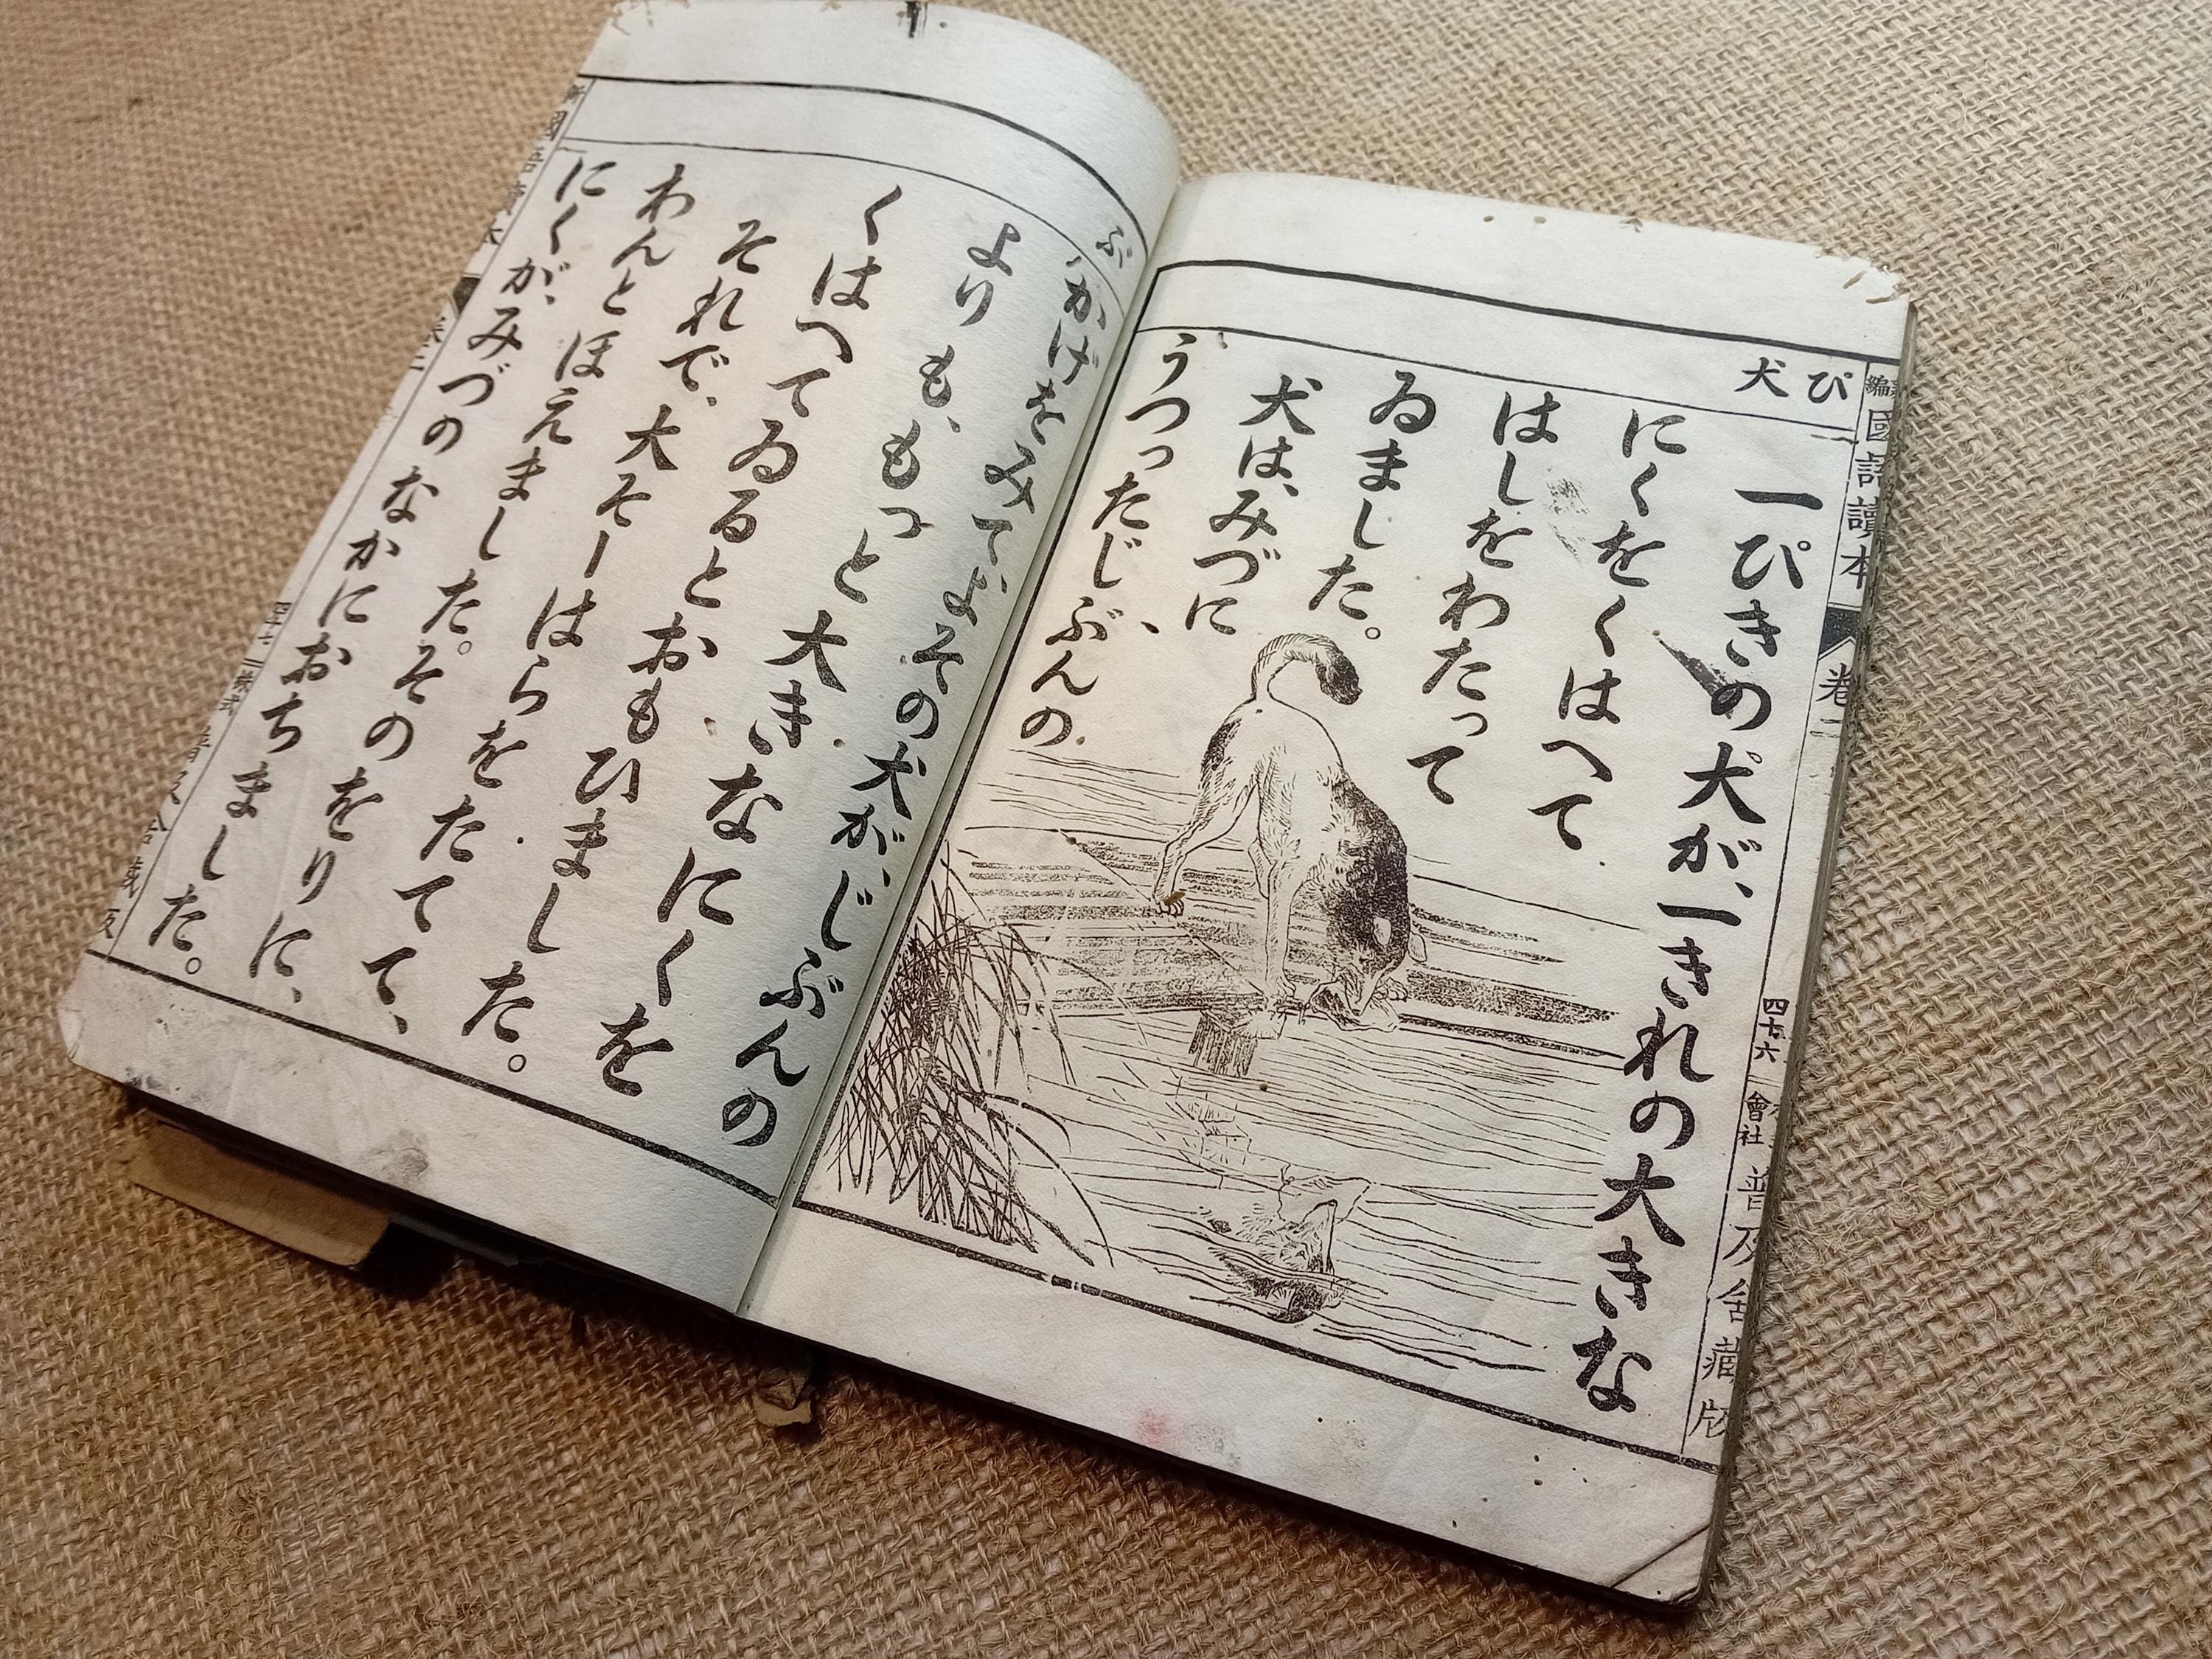 國語讀本
卷二
四十六
會社
普及舍藏版
ぴ
犬
一ぴきの犬が、一きれの大きな
にくをくはへて
はしをわたって
ゐました。
犬は、みづに
うつった、じぶんの
ぶ
かげをみて、よその犬が、じぶんの
よりも、もっと大きなにくを
くはへてゐるとおもひました。
それで、大そーはらをたてて、
わんとほえました。そのをりに、
にくが、みづのなかにおちました。
國語讀本